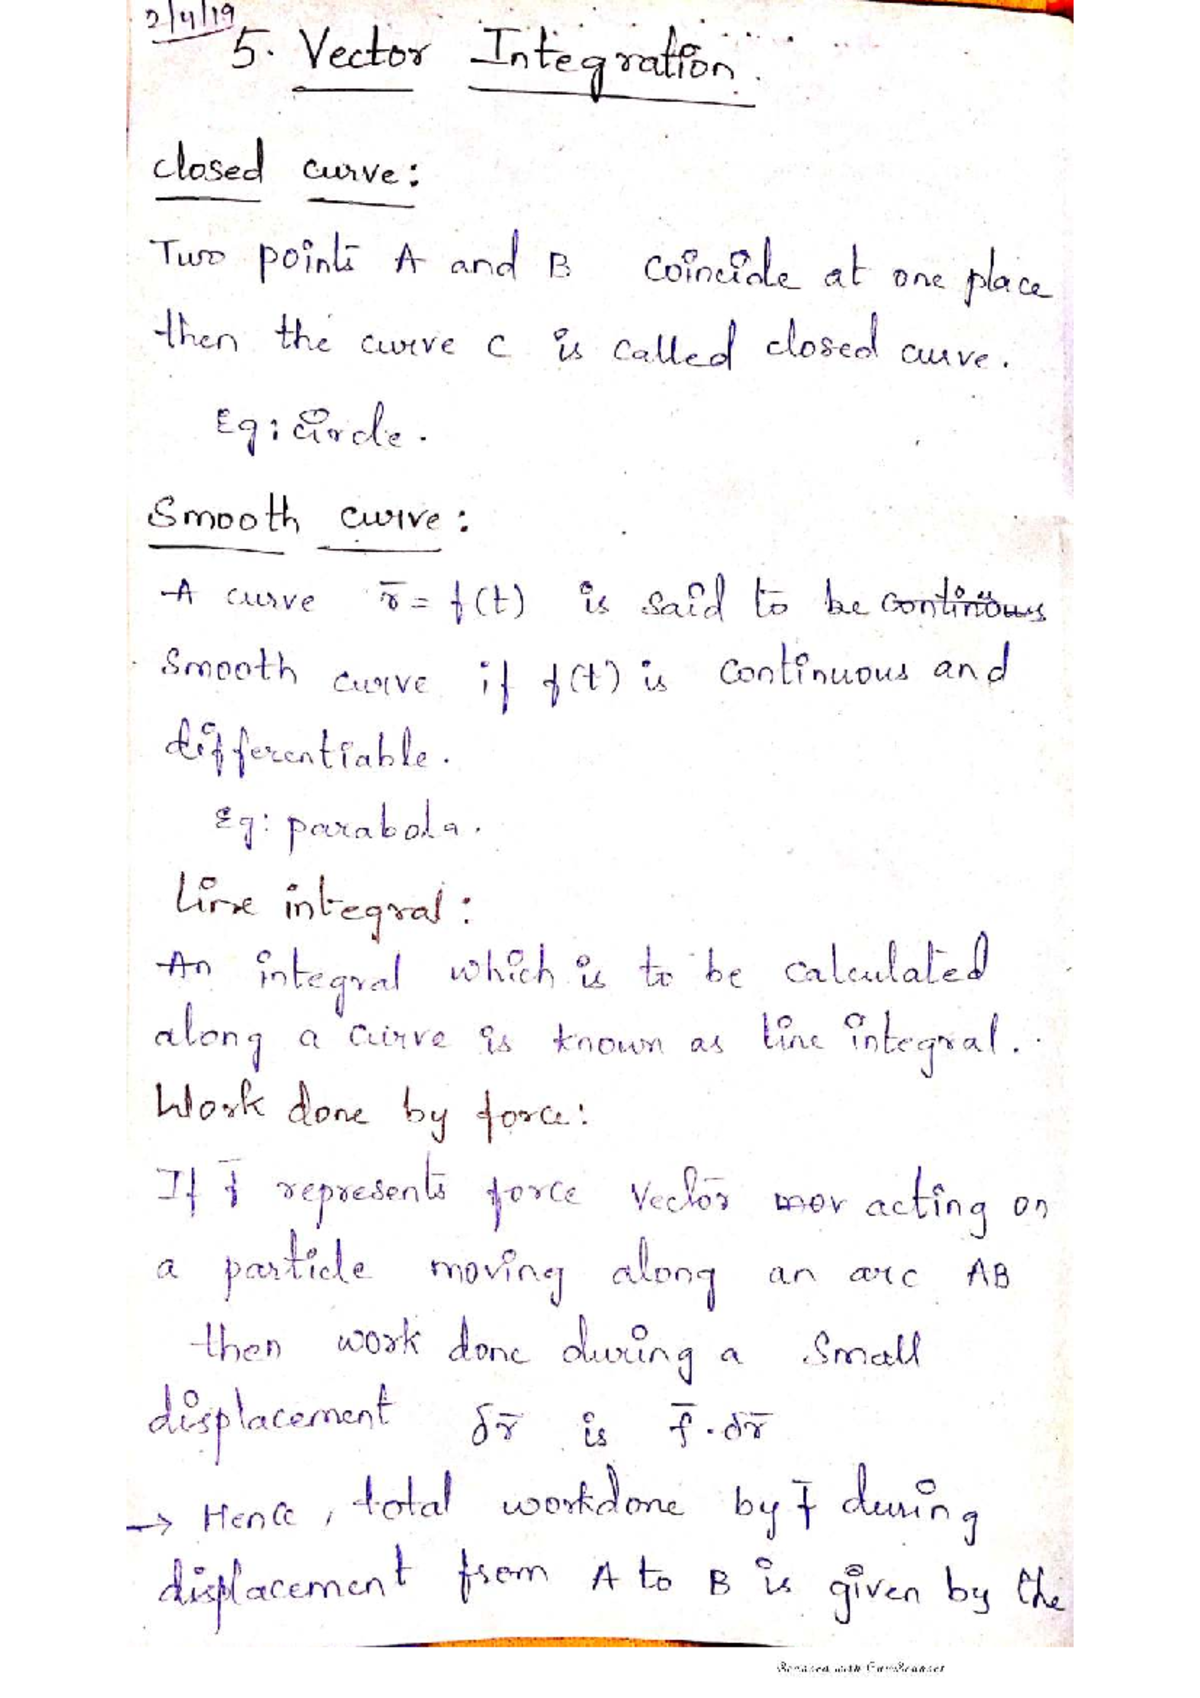 2/4/19
5. Vector Integration.
closed curve:
Two points A and B coincide at one place
then the curve C is called closed curve.
Eg: circle.
Smooth curve:
A curve r̄ = f(t) is said to be continous
smooth curve if f(t) is continuous and
differentiable.
Eg: parabola.
Line integral:
An integral which is to be calculated
along a curve is known as line integral.
Work done by force:
If f̄ represents force vector mov acting on
a particle moving along an arc AB
then work done during a small
displacement δr̄ is f̄.δr̄
→ Hence, total workdone by f̄ during
displacement from A to B is given by the
Scanned with CamScanner